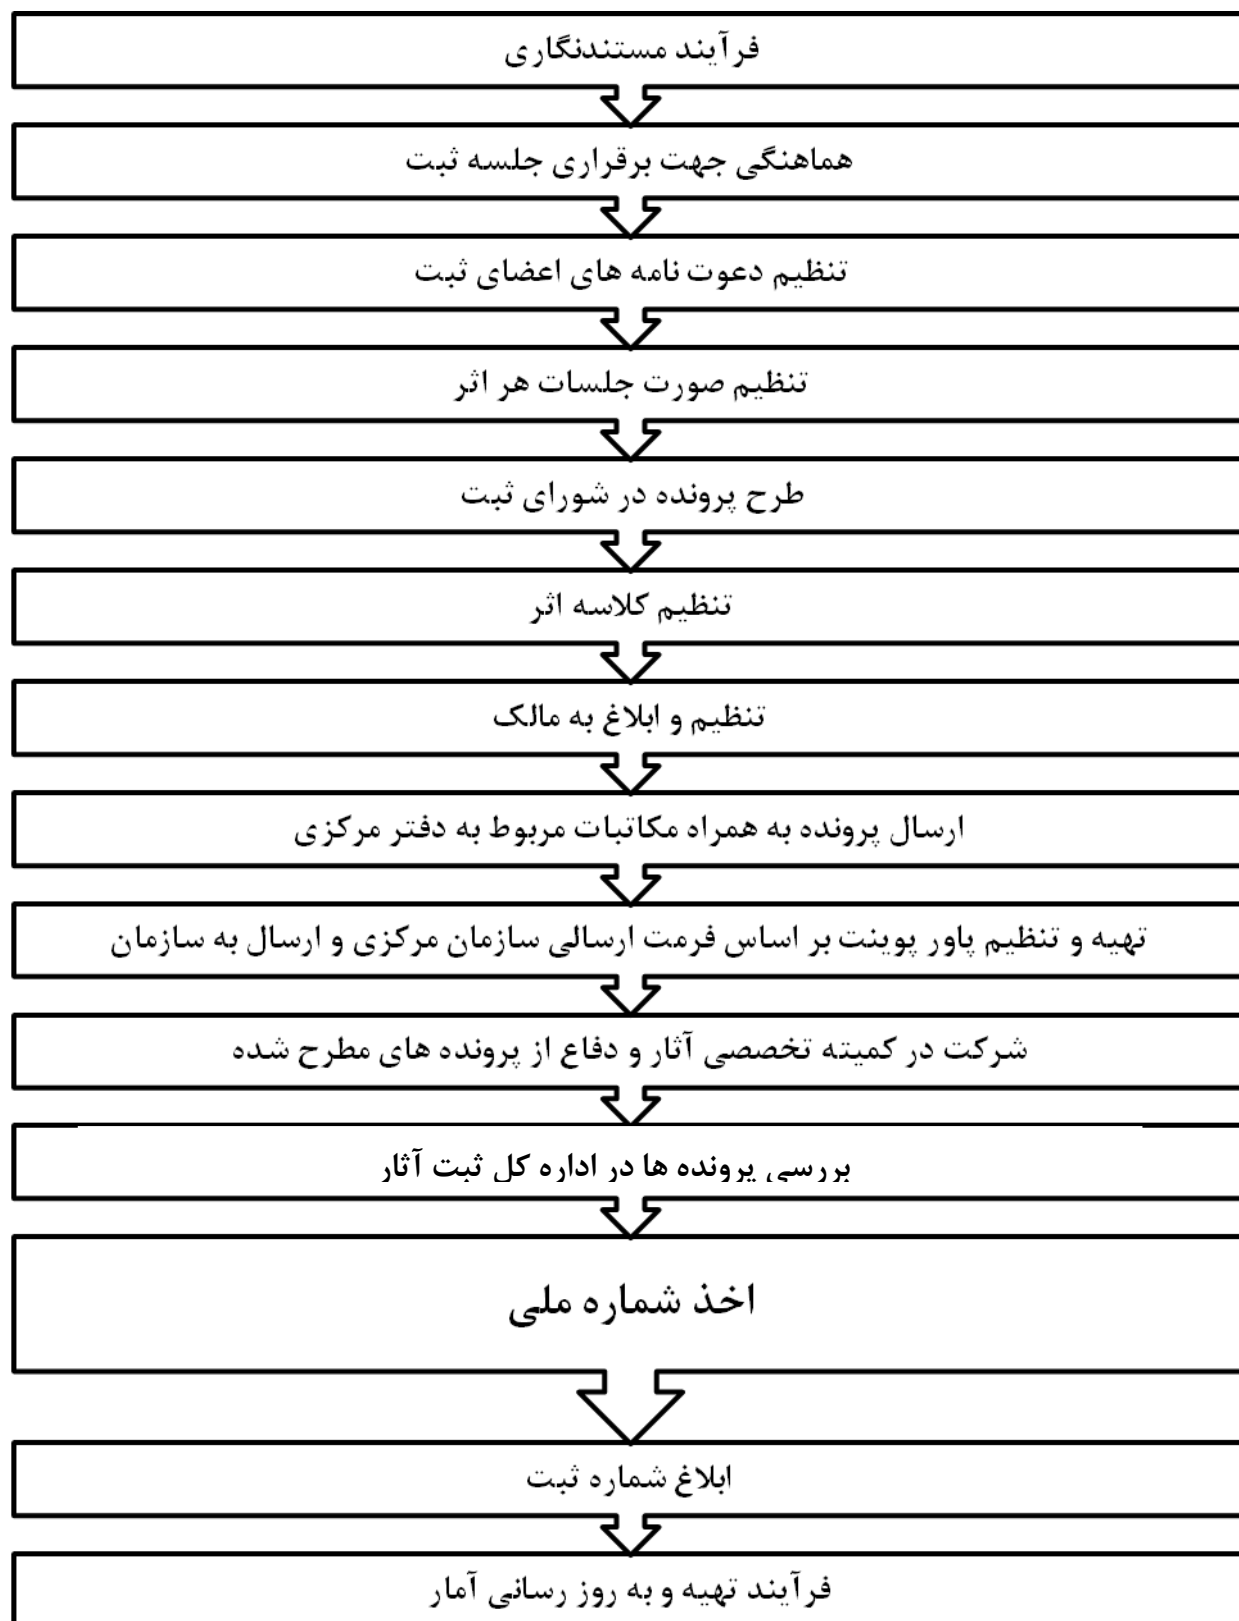 فرآیند مستندنگاری
هماهنگی جهت برقراری جلسه ثبت
تنظیم دعوت نامه های اعضای ثبت
تنظیم صورت جلسات هر اثر
طرح پرونده در شورای ثبت
تنظیم کلاسه اثر
تنظیم و ابلاغ به مالک
ارسال پرونده به همراه مکاتبات مربوط به دفتر مرکزی
تهیه و تنظیم پاور پوینت بر اساس فرمت ارسالی سازمان مرکزی و ارسال به سازمان
شرکت در کمیته تخصصی آثار و دفاع از پرونده های مطرح شده
بررسی پرونده ها در اداره کل ثبت آثار
اخذ شماره ملی
ابلاغ شماره ثبت
فرآیند تهیه و به روز رسانی آمار